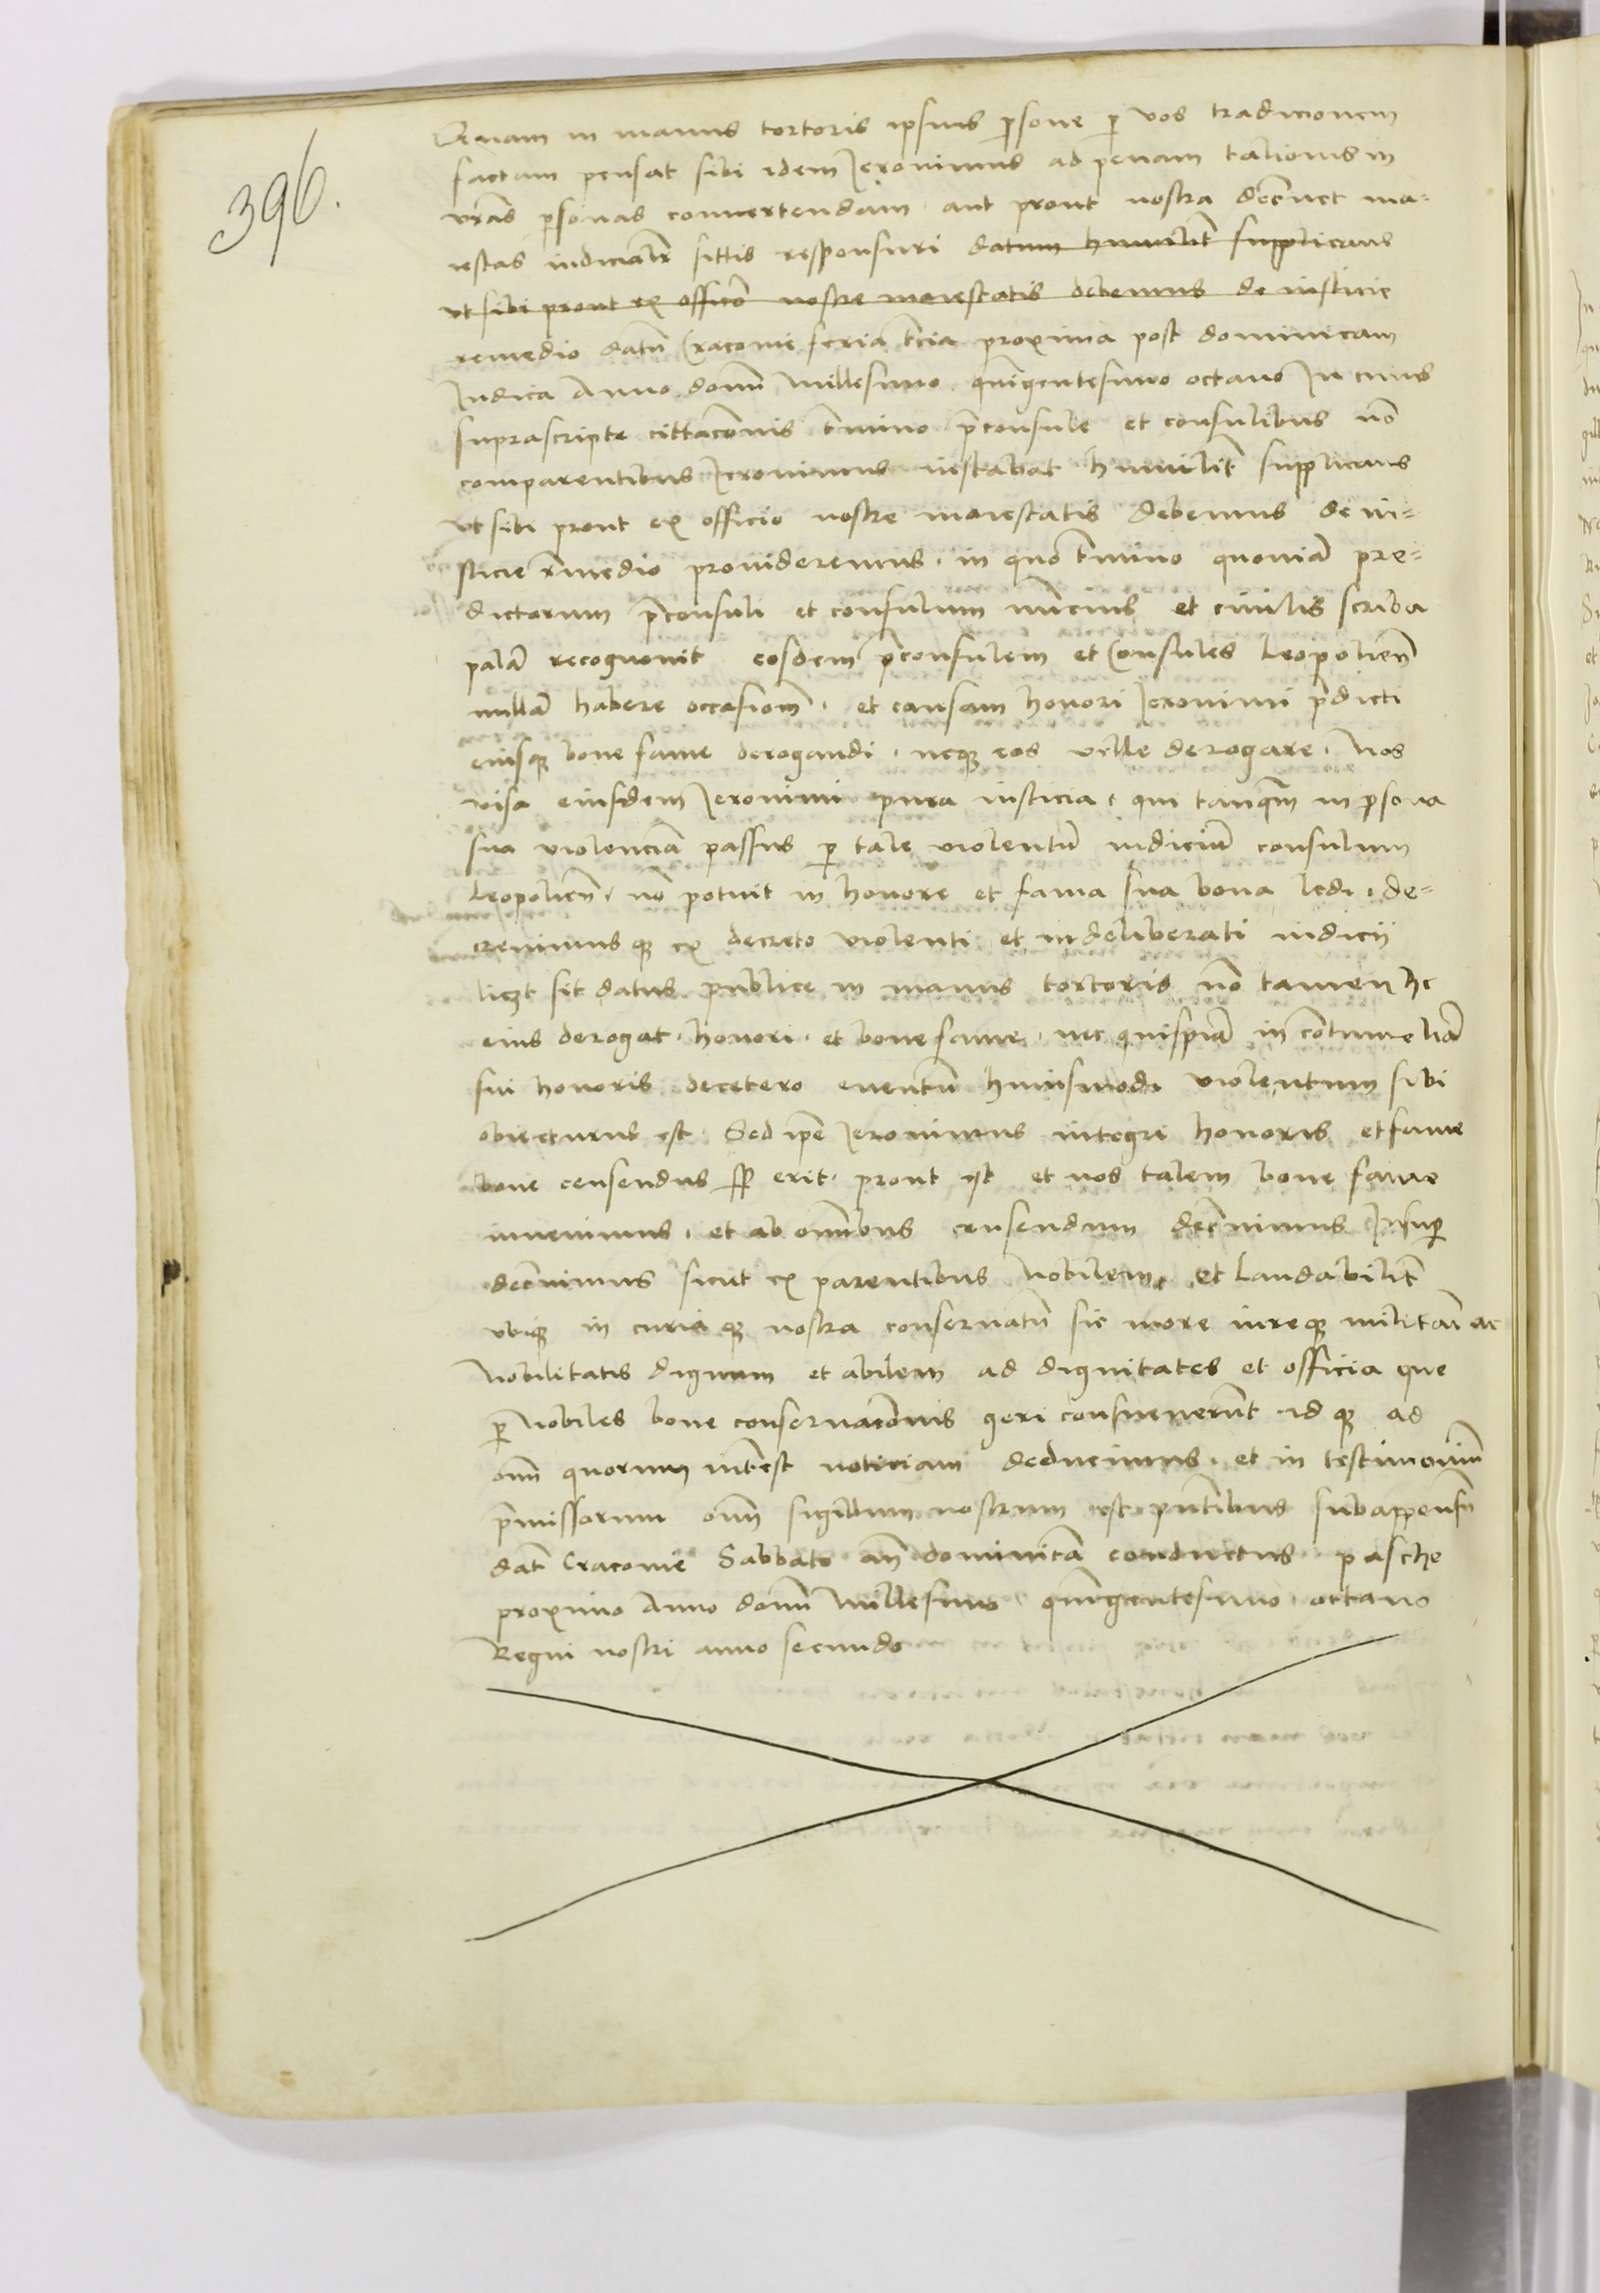 396.
Quam in manus tortoris ipsius psone p vos tradicionem
factam pensat sibi idem Jeronimus ad penam talionis in
vras psonas convertendam aut prout nostra decnet ma-
iestas iudicialr sittis responsuri datum humilit supplicans
ut sibi prout ex officio nostre maiestatis debemus de iusticie
remedio datu Cracovie feria tcia proxima post dominicam
Judica Anno domi Millesimo quingentesimo octavo In cuius
suprascripte cittaconis tmino pconsule et consulibus no
comparentibus Jeronimus instabat humilit supplicans
ut sibi prout ex officio nostre maiestatis debemus de iu-
sticie rmedio provideremus. in quo tmino quonia pre-
dictorum pconsuli et consulum nuncius et civilis scriba
pala recognovit eosdem pconsulem et Consules Leopolien
nulla habere occasiom. et causam honori Jeronimi pdicti
eiusq bone fame derogandi. neq eos velle derogare. Nos
visa eiusdem Jeronimi pura iusticia. qui tanqm in psona
sua violencia passus p tale violentu iudiciu consulum
Leopolien. no potuit in honore et fama sua bona ledi. de-
crevimus q ex decreto violenti et indeliberati iudicii
liczt sit datus publice in manus tortoris no tamen hc
eius derogat. honori. et bone fame. nec quispia in contumelia
sui honoris decetero eventu huiusmodi violentum sibi
obiecturus est. Sed ipe Jeronimus integri honoris et fame
bone censendus sp erit. prout est et nos talem bone fame
invenimus. et ab omibus censendum decnimus Insup
decnimus sicut ex parentibus Nobilem et laudabilit
ubiq in curia q nostra conservatu sic more iureq militari ac
Nobilitatis dignum et abilem ad dignitates et officia que
p Nobiles bone conservaconis geri consueverunt id q ad
omi quorum intest noticiam deducimus. et in testimoniu
pmissorum omi sigillum nostrum est pntibus subappensu
dat Cracovie Sabbato an dominica conductus pasche
proximo Anno domi Millesimo quingentesimo octavo
Regni nostri anno secundo